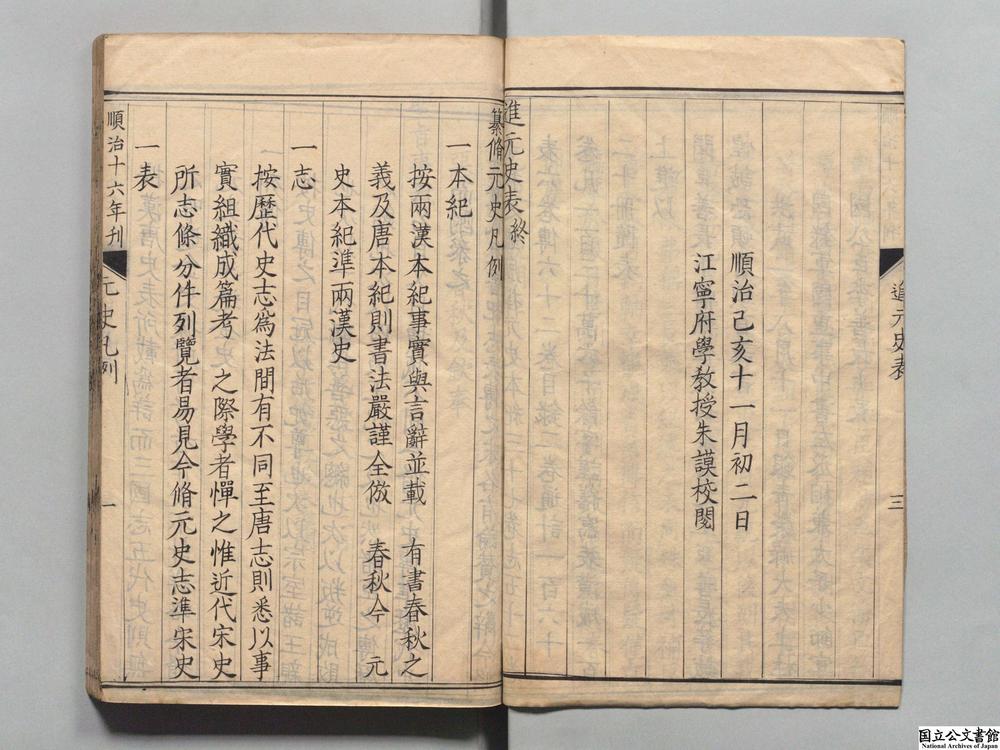 進元史表
三
順治己亥十一月初二日
江寧府學敎授朱謨校閱
進元史表終
纂脩元史凡例
一本紀
按兩漢本紀事實與言辭並載 有書春秋之
義及唐本紀則書法嚴謹全倣 春秋今 元
史本紀準兩漢史
一志
按歷代史志爲法間有不同至唐志則悉以事
實組織成篇考 之際學者憚之惟近代宋史
所志條分件列覽者易見今脩元史志準宋史
一表
順治十六年刊
元史凡例
一
国立公文書館
National Archives of Japan